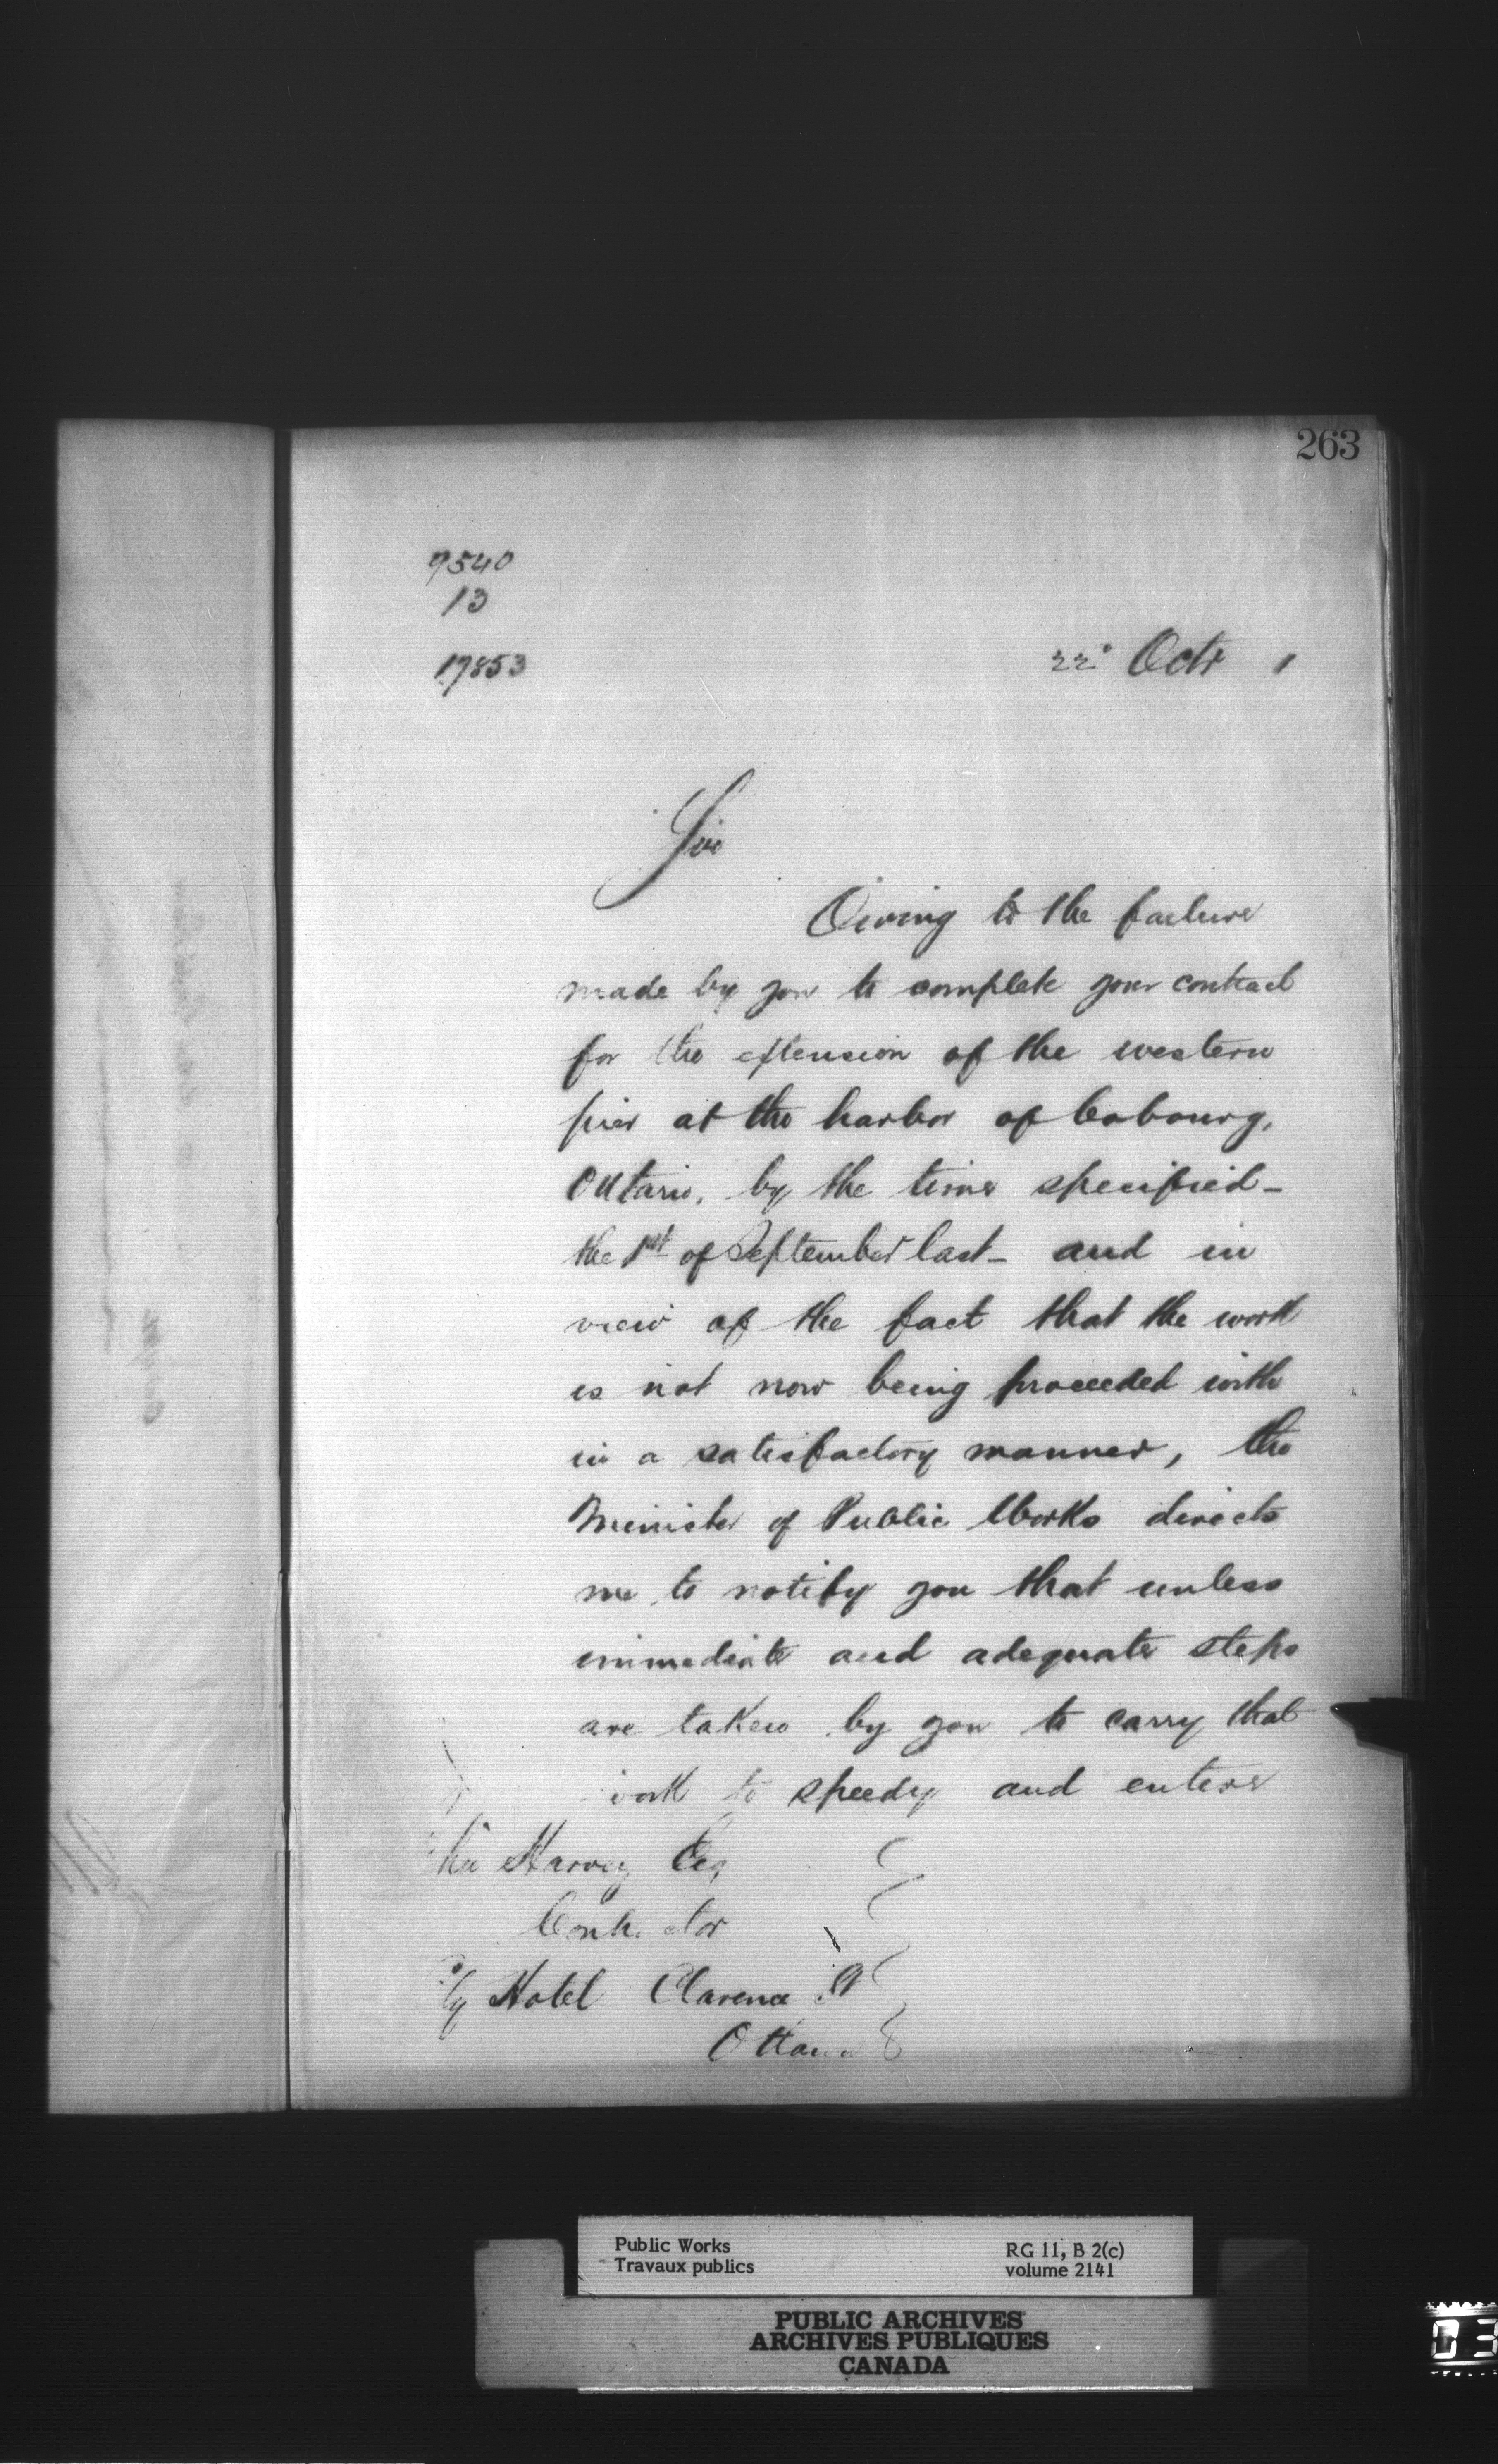 263
9540
13
17853
22° Octr 1
Sir
Owing to the failure
made by you to complete your contract
for the extension of the western
pier at the harbor of Cobourg,
Ontario, by the time specified-
the 1st of September last- and in
view of the fact that the work
is not now being proceeded with
in a satisfactory manner, the
Minister of Public Works directs
me to notify you that unless
immediate and adequate steps
are taken by you to carry that
work to speedy and entire
Harvey Esq
Contractor
Hotel Clarence St
Ottawa
Public Works
Travaux publics
RG 11, B 2(c)
volume 2141
PUBLIC ARCHIVES
ARCHIVES PUBLIQUES
CANADA
03